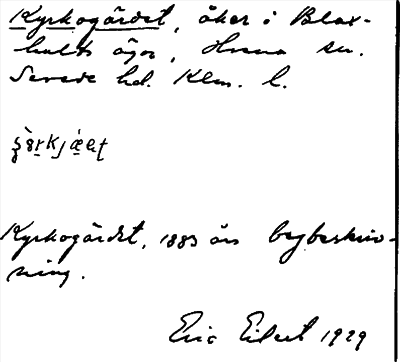 Kyrkogärdet, åker i Blax-
hults ägor, Hvena sn.
Sevede hd. Klm. l.
Kyrkogärdet, 1883 års begbeskriv-
ning.
Eric Eilert 1929